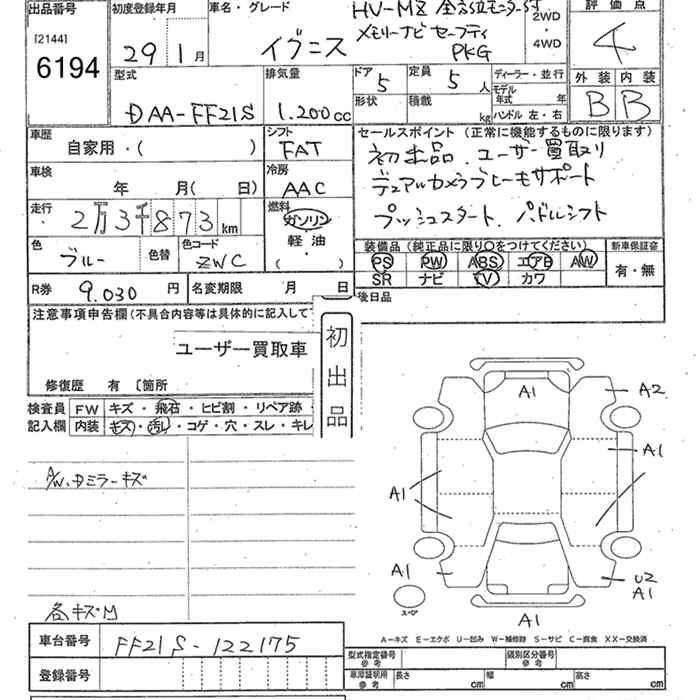 出品番号
[2144]
6194
初度登録年月
29 1月
車名・グレード
イグニス
HV-MZ 全方位モニター付
メモリーナビ セーフティ
PKG
2WD
4WD
評価点
4
型式
DAA-FF21S
排気量
1.200cc
ドア
5
定員
5人
ディーラー・並行
形状
積載
kg
モデル年式 年
ハンドル 左・右
外装 内装
B B
車歴
自家用・( )
シフト
FAT
セールスポイント(正常に機能するものに限ります)
初出品.ユーザー買取り
デュアルカメラブレーキサポート
プッシュスタート、パドルシフト
車検
年 月( 日)
冷房
AAC
走行
2万3千873km
燃料
ガソリン・
軽油・
( )
色
ブルー
色替
色コード
ZWC
装備品(純正品に限り○をつけてください)
新車保証書
PS PW ABS エアB AW
SR ナビ TV カワ
有・無
R券
9.030円
名変期限 月 日
後日品
注意事項申告欄(不具合内容等は具体的に記入して
ユーザー買取車
初出品
修復歴 有 〔箇所
検査員
記入欄
FW キズ・飛石・ヒビ割・リペア跡・
内装 キズ・汚レ・コゲ・穴・スレ・キレ
A/W、Dミラーキズ
各キズM
A1
A2
A1
A1
A1
U2
A1
A1
スペア
A-キズ E-エクボ U-凹み W-補修跡 S-サビ C-腐食 XX-交換済
車台番号
FF21S-122175
登録番号
型式指定番号
参考
類別区分番号
参考
車庫証明用
参考
長さ cm
幅 cm
高さ cm